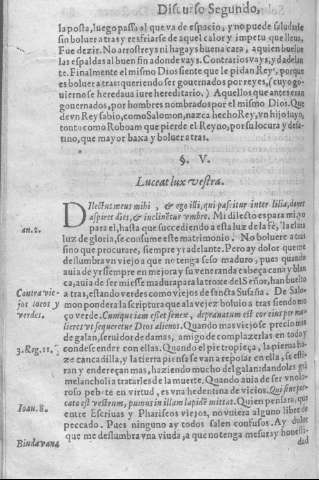 Discurso Segundo,
la posta, luego passa al que va de espacio, y no puede saludarle
sin boluer atras y resfriarse de aquel calor y impetu que lleua.
Fue dezir. No arrostreys ni hagays buena cara, a quien buelue
las espaldas al buen fin adonde vays. Contrarios vays, y da delan
te. Finalmente el mismo Dios siente que le pidan Rey, porque
es boluer atras queriendo ser gouernados por reyes, (cuyo go-
uierno se heredaua iure hereditario.) Aquellos que antes eran
gouernados, por hombres nombrados por el mismo Dios. Que
de vn Rey sabio, como Salomon, nazca hecho Rey, vn hijo suyo,
tonto como Roboam que pierde el Reyno, por su locura y desa-
tino, que mayor baxa y boluer atras.
§. V.
Luceat lux vestra.
Dilectus meus mihi, & ego illi, qui pascitur inter lilia, donec
aspiret dies, & inclinetur vmbre. Mi dilecto es para mi, yo
an. 2.
para el, hasta que succediendo a esta luz de la fè, la del a
luz de gloria, se consume este matrimonio. No boluere atras
sino que procurare, siempre yr adelante. Pero ay dolor que me
deslumbra vn viejo a que no tenga seso maduro, pues quando
auia de yrse siempre en mejora y su veneranda cabeça cana y blan
ca, auia de ser miesse madura para la troxe del Señor, han buelto
Contra vie-
a tras, estando verdes como viejos de sancta Susaña. De Salo
jos locos y
mon pondera la Scriptura que a la vejez boluio a tras siendo mo
verdes.
ço verde. Cumque iam esset senex, deprauatum est cor eius per mu-
lieres vt sequeretur Deos alienos. Quando mas viejo se precio mas
de galan, seruidor de damas, amigo de complazerlas en todo y
3. Reg. 11.
condescender con ellas. Quando el pie tropieça, la pierna ha-
ze cancadilla, y la tierra piensa se van a repolar en ella, se esti-
ran y endereçan mas, haziendo mucho del galan: dandoles gra
melancholia tratarles de la muerte. Quando auia de ser vn olo-
roso pebete en virtud, es vna hedentina de vicios. Qui sine pec-
Ioan. 8.
cato est vestrum, primus in illam lapidẽ mittat. Quien pensara, que
entre Escriuas y Phariseos viejos, no vuiera alguno libre de
peccado. Pues ninguno ay todos salen confusos. Ay dolor
Biuda vana
que me deslumbra vna viuda, a que no tenga mesura y honesti-
dad